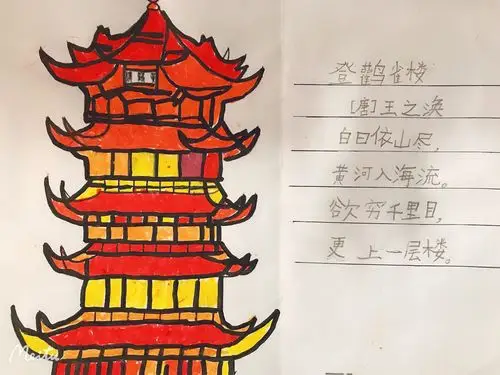 登鹳雀楼
[唐]王之涣
白日依山尽,
黄河入海流。
欲穷千里目,
更 上一层楼。
Meitu